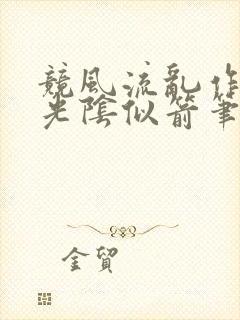 競風流亂作
光陰似箭筆
金貿